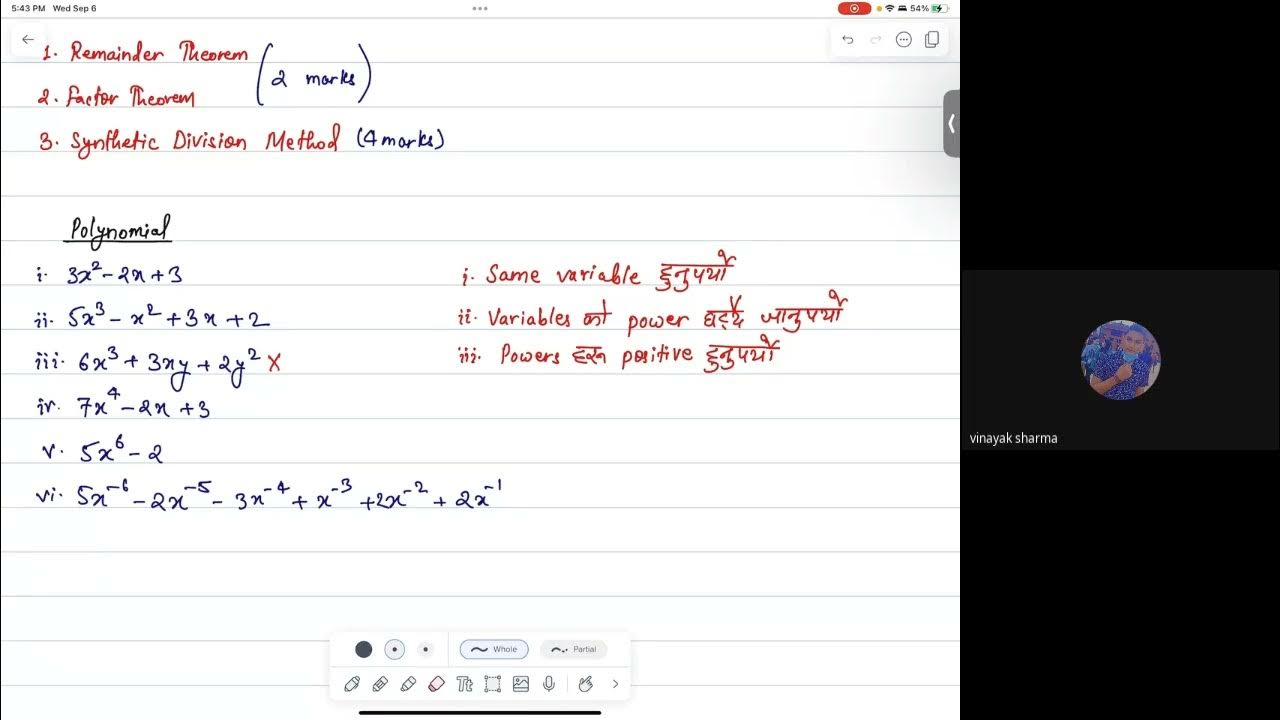 5:43 PM Wed Sep 6
54%
1. Remainder Theorem
(2 marks)
2. Factor Theorem
3. Synthetic Division Method (4 marks)
Polynomial
i. 3x² - 2x + 3
ii. 5x³ - x² + 3x + 2
iii. 6x³ + 3xy + 2y² X
iv. 7x⁴ - 2x + 3
v. 5x⁶ - 2
vi. 5x⁻⁶ - 2x⁻⁵ - 3x⁻⁴ + x⁻³ + 2x⁻² + 2x⁻¹
i. Same variable हुनुपर्यो
ii. Variables को power घट्दै जानुपर्यो
iii. Powers हरू positive हुनुपर्यो
vinayak sharma
Whole
Partial
Tt